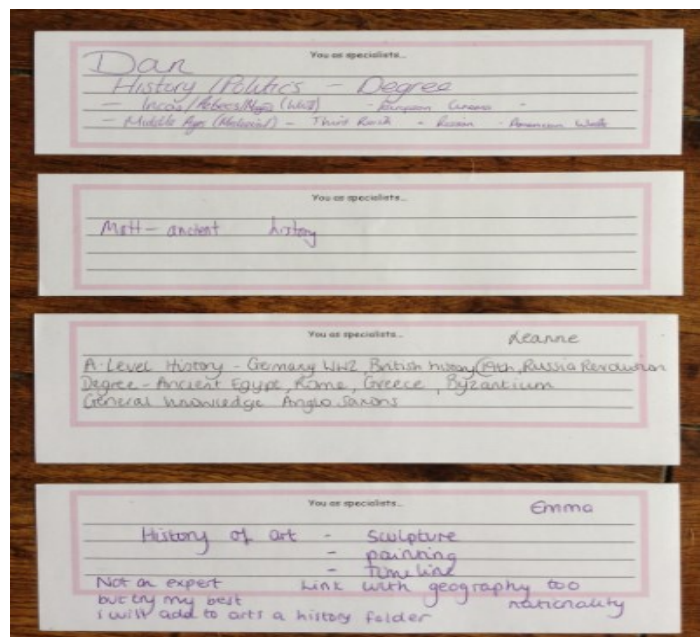 You as specialists...
Dan
History/Politics - Degree
- Incas/Aztecs/Maya (WW2) - European Cinema -
- Middle Ages (Medieval) - Third Reich - Russian - American
You as specialists...
Matt - ancient history
You as specialists...
Leanne
A-Level History - Germany WW2, British history 19th, Russia Revolution
Degree - Ancient Egypt, Rome, Greece, Byzantium
General knowledge Anglo Saxons
You as specialists...
Emma
History of art - sculpture
- painting
- timeline
Not an expert Link with geography too
but try my best nationality
I will add to arts a history folder